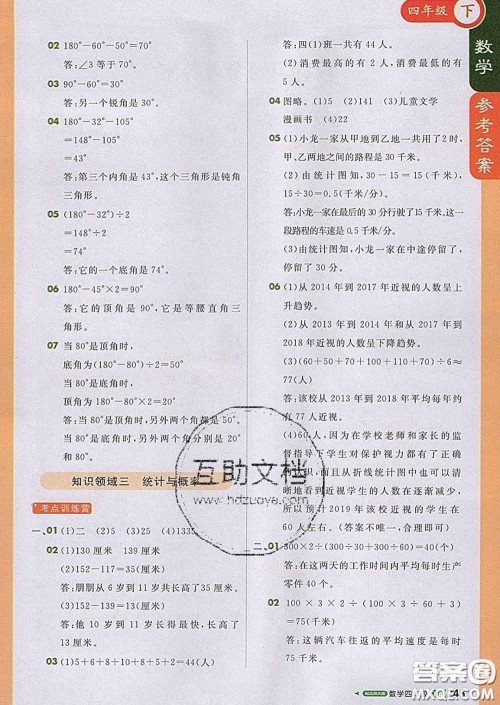 四年级 下
数学
参考答案
02 180°−60°−50°=70°
答:∠3等于70°。
03 90°−60°=30°
答:另一个锐角是30°。
04 180°−32°−105°
=148°−105°
=43°
答:第三个内角是43°,这个三角形是钝角
三角形。
05 (180°−32°)÷2
=148°÷2
=74°
答:它的一个底角是74°。
06 180°−45°×2=90°
答:它的顶角是90°,它是等腰直角三
角形。
07 当80°是顶角时,
底角为(180°−80°)÷2=50°
当80°是底角时,
顶角为180°−80°×2=20°
答:当80°是顶角时,另外两个角都是50°。
当80°是底角时,另外两个角分别是80°
和20°。
知识领域三 统计与概率
考点训练营
一、01 (1)二 (2)5 (3)25 (4)1335
02 (1)130厘米 139厘米
(3)152−117=35(厘米)
答:朋朋从6岁到11岁共长高了35厘米。
(4)152−139=13(厘米)
答:他10岁到11岁长得最快,长高了
13厘米。
03 (1)6+5+10+8+8+5+2=44(人)
答:四(1)班一共有44人。
(2)消费最高的有2人,消费最低的有
6人。
04 图略。(1)5 (2)141 (3)儿童文学
漫画书 (4)22
05 (1)小龙一家从甲地到乙地一共用了2时,
甲、乙两地之间的路程是30千米。
(2)由统计图知,30−15=15(千米)
15÷30=0.5(千米/分)
答:小龙一家在最后的30分行驶了15千米,这
一段路程的车速是0.5千米/分。
(3)由统计图知,小龙一家在中途停留了。
06 (1)从2014年到2017年近视的人数呈上
升趋势。
(2)从2013年到2014年和从2017年到2018
年近视的人数呈下降趋势。
(3)(60+50+70+100+110+70)÷6≈
77(人)
答:该校从2013年到2018年平均每年约
有77人近视。
(4)60人,因为在学校老师和家长的监
督指导下学生对保护视力都有了很好的
意识,而且从折线统计图中也可以看出
2017年后近视的人数在逐渐减少,
所以估计2019年该校近视的学生在
60人左右。(答案不唯一,合理即可)
二、01 300×2÷(30+30)×4=40(个)
答:在这两天的工作时间内平均每时生
产零件40个。
02 100×3×2÷(100÷60+3)
=75(千米)
答:这辆汽车往返的平均速度是每时
75千米。
互助文档
www.hdzuoye.com
数学四
答案圈
MXQE.COM